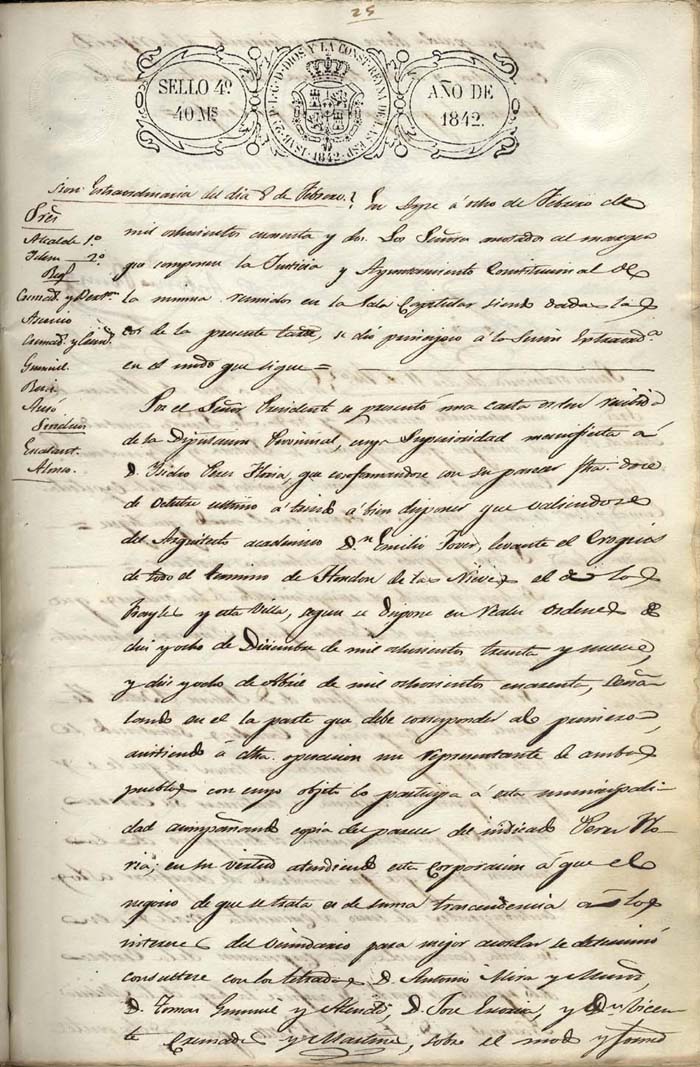 25
SELLO 4º
40 Ms
ISAB. 2ª P. L. G. D. DIOS Y LA CONST. REYNA DE LAS ESP. 1842
AÑO DE
1842.
Sion Extraordinaria del dia 8 de Febrero.
Sres
Alcalde 1º
Idem 2º
Regs
Cremads y
Asencio
Cremads y
Gumiel
Beri
Aznar
Sindicos
Alenso
En Aspe á ocho de Febrero de
mil ochocientos cuarenta y dos. Los Señores anotados al margen
que componen la Justicia y Ayuntamiento Constitucional de
la misma reunidos en la Sala Capitular siendo dada la
de la presente tarde, se dió principio á la Sesion Extraordª
en el modo que sigue
Por el Señor Presidente se presentó una carta orden recibida
de la Diputacion Provincial, cuya Superioridad manifiesta á
D. Isidro Perez Floria, que conformandose con su parecer fha. doce
de Octubre ultimo á tenido á bien disponer que valiendose
del Arquitecto academico D.n Emilio Jover, levante el Croquis
de todo el termino de Hondon de las Nieves el de los
Frayles y esta Villa, segun se dispone en Reales Ordenes de
diez y ocho de Diciembre de mil ochocientos treinta y nueve,
y diez y ocho de Abril de mil ochocientos cuarenta, señalando
en el la parte que debe corresponder al primero,
asistiendo á dha. operacion un representante de ambos
pueblos con cuyo objeto lo participa á esta municipali-
dad acompañando copia del parecer del indicado Perez Flo-
ria; en su virtud atendiendo esta Corporacion á que el
negocio de que se trata es de suma trascendencia á los
intereses del vecindario para mejor ausilar se determinó
consultese con los letrados D. Antonio Mira y Muños,
D. Tomas Gumiel y D. Jose y D.n Vicen-
te Cremades y Martinez, sobre el modo y forma